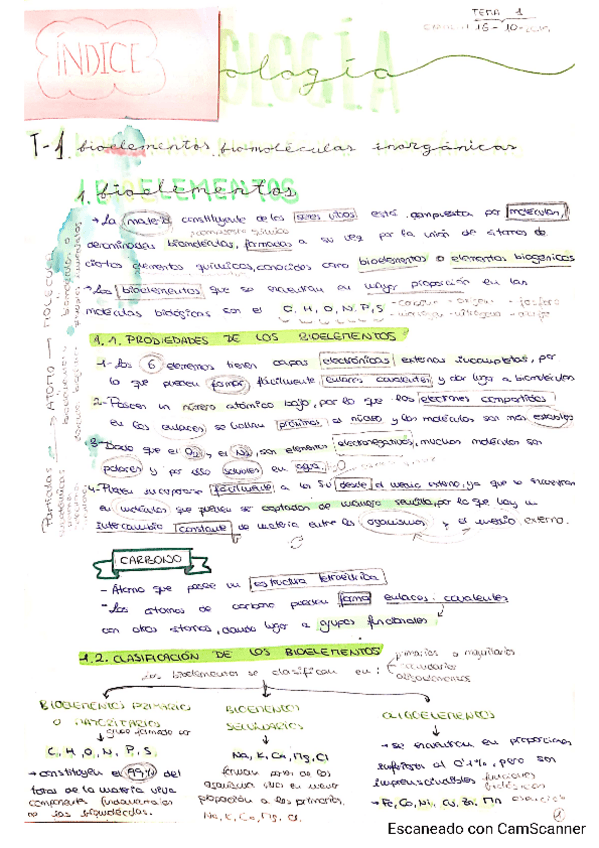 TEMA 1
15-10-
ÍNDICE
Biología
T-1 bioelementos, biomoléculas inorgánicas
1. bioelementos
→ La materia constituyente de los seres vivos está compuesta por moléculas,
denominadas biomoléculas, formadas a su vez por la unión de átomos de
ciertos elementos químicos, conocidos como bioelementos o elementos biogénicos
→ Los bioelementos que se encuentran en mayor proporción en las
moléculas biológicas son el C, H, O, N, P, S
1.1. PROPIEDADES DE LOS BIOELEMENTOS
1- Los 6 elementos tienen capas electrónicas externas incompletas, por
lo que pueden formar fácilmente enlaces covalentes y dar lugar a biomoléculas
2- Poseen un número atómico bajo, por lo que los electrones compartidos
en los enlaces se hallan próximos al núcleo y las moléculas son más estables
3- Dado que el O2 y el N2, son elementos electronegativos, muchas moléculas son
polares y por eso solubles en agua
4- Pueden incorporarse fácilmente a los SV desde el medio externo, ya que se encuentran
en moléculas que pueden ser captadas de manera sencilla, por lo que hay un
intercambio constante de materia entre los organismos y el medio externo.
CARBONO
- Átomo que posee un estructura tetraédrica
- Los átomos de carbono pueden formar enlaces covalentes
con otros átomos, dando lugar a grupos funcionales
1.2. CLASIFICACIÓN DE LOS BIOELEMENTOS
Los bioelementos se clasifican en: primarios o mayoritarios
secundarios
oligoelementos
BIOELEMENTOS PRIMARIOS
O MAYORITARIOS
grupo formado por
C, H, O, N, P, S
→ constituyen el 99% del
total de la materia viva
componentes fundamentales
de las biomoléculas.
BIOELEMENTOS
SECUNDARIOS
Na, K, Ca, Mg, Cl
forman parte de los
seres vivos en menor
proporción a los primarios.
Na, K, Ca, Mg, Cl.
OLIGOELEMENTOS
→ se encuentran en proporciones
inferiores al 0.1%, pero son
imprescindibles funciones
biológicas
→ Fe, Co, Ni, Cu, Zn, Mn
1
Escaneado con CamScanner